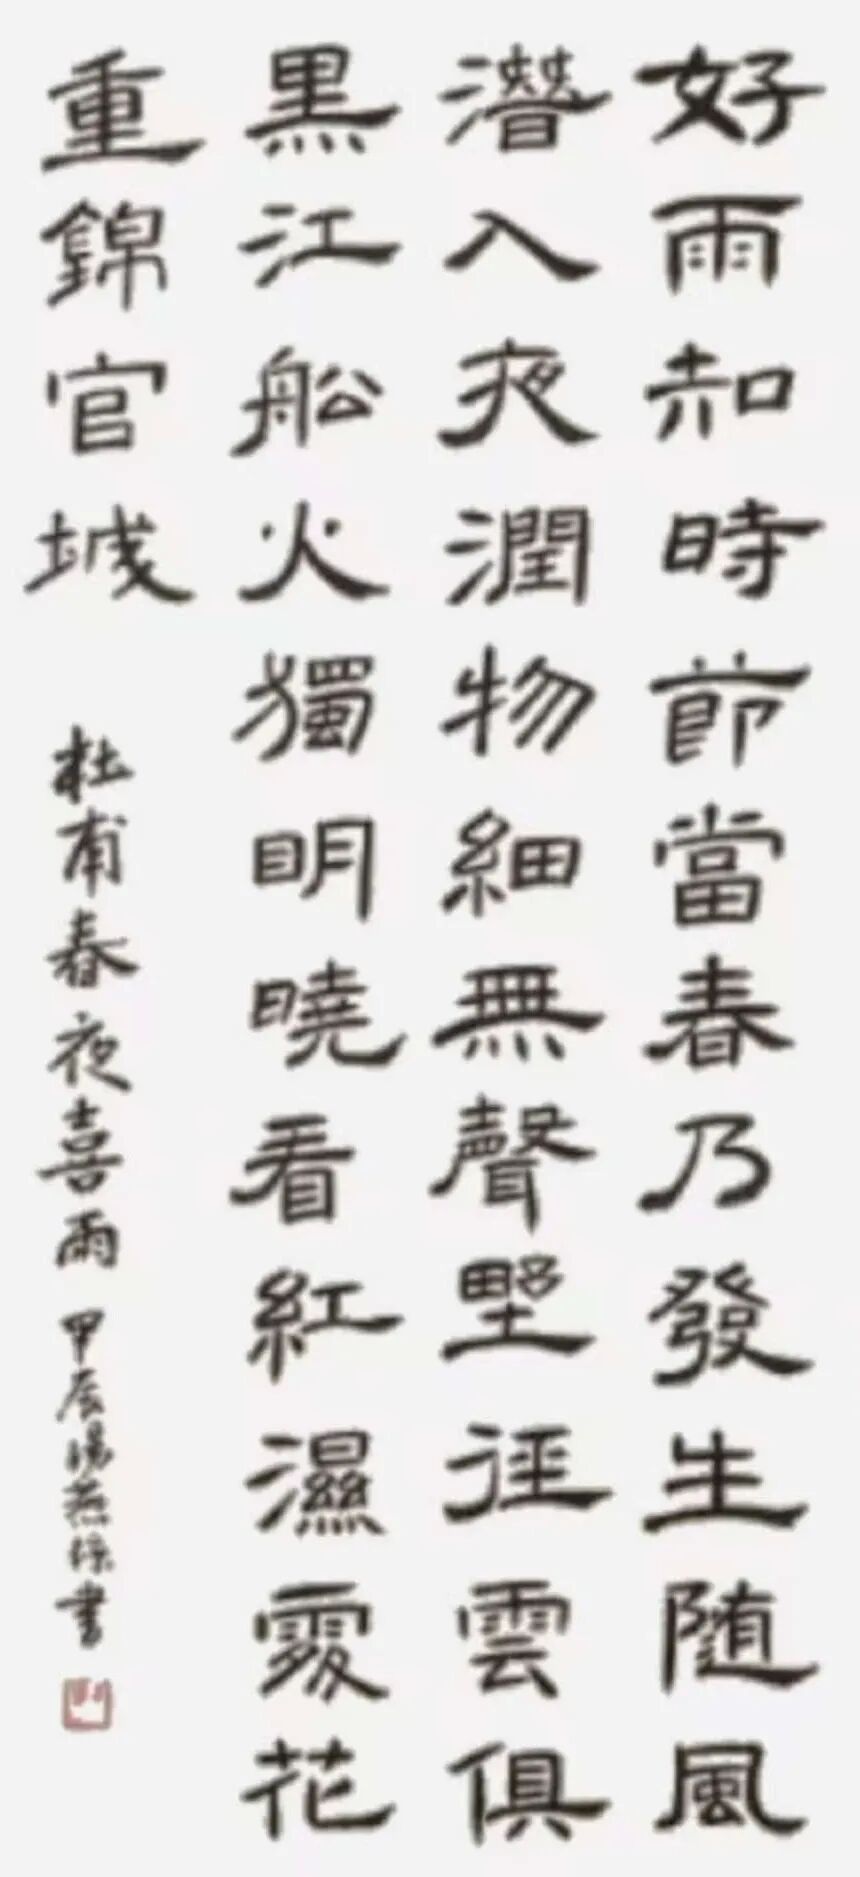 好雨知時節當春乃發生随風
潛入夜潤物細無聲野徑雲俱
黑江船火獨明曉看紅濕處花
重錦官城
杜甫春夜喜雨 甲辰 燕 書